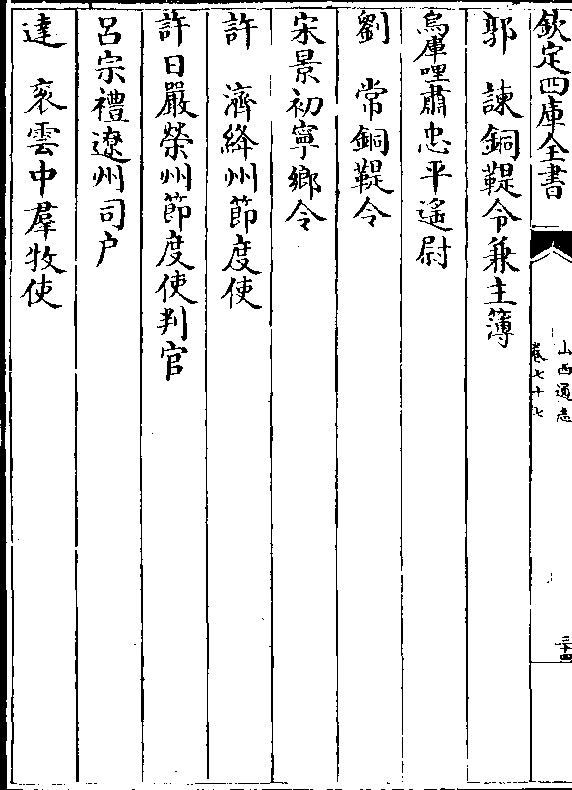 欽定四庫全書
山西通志
卷七十七
三十四
郭　諫銅鞮令兼主簿
烏庫哩肅忠平遙尉
劉　常銅鞮令
宋景初寧鄉令
許　濟絳州節度使
許日嚴榮州節度使判官
呂宗禮遼州司户
達　衮雲中羣牧使